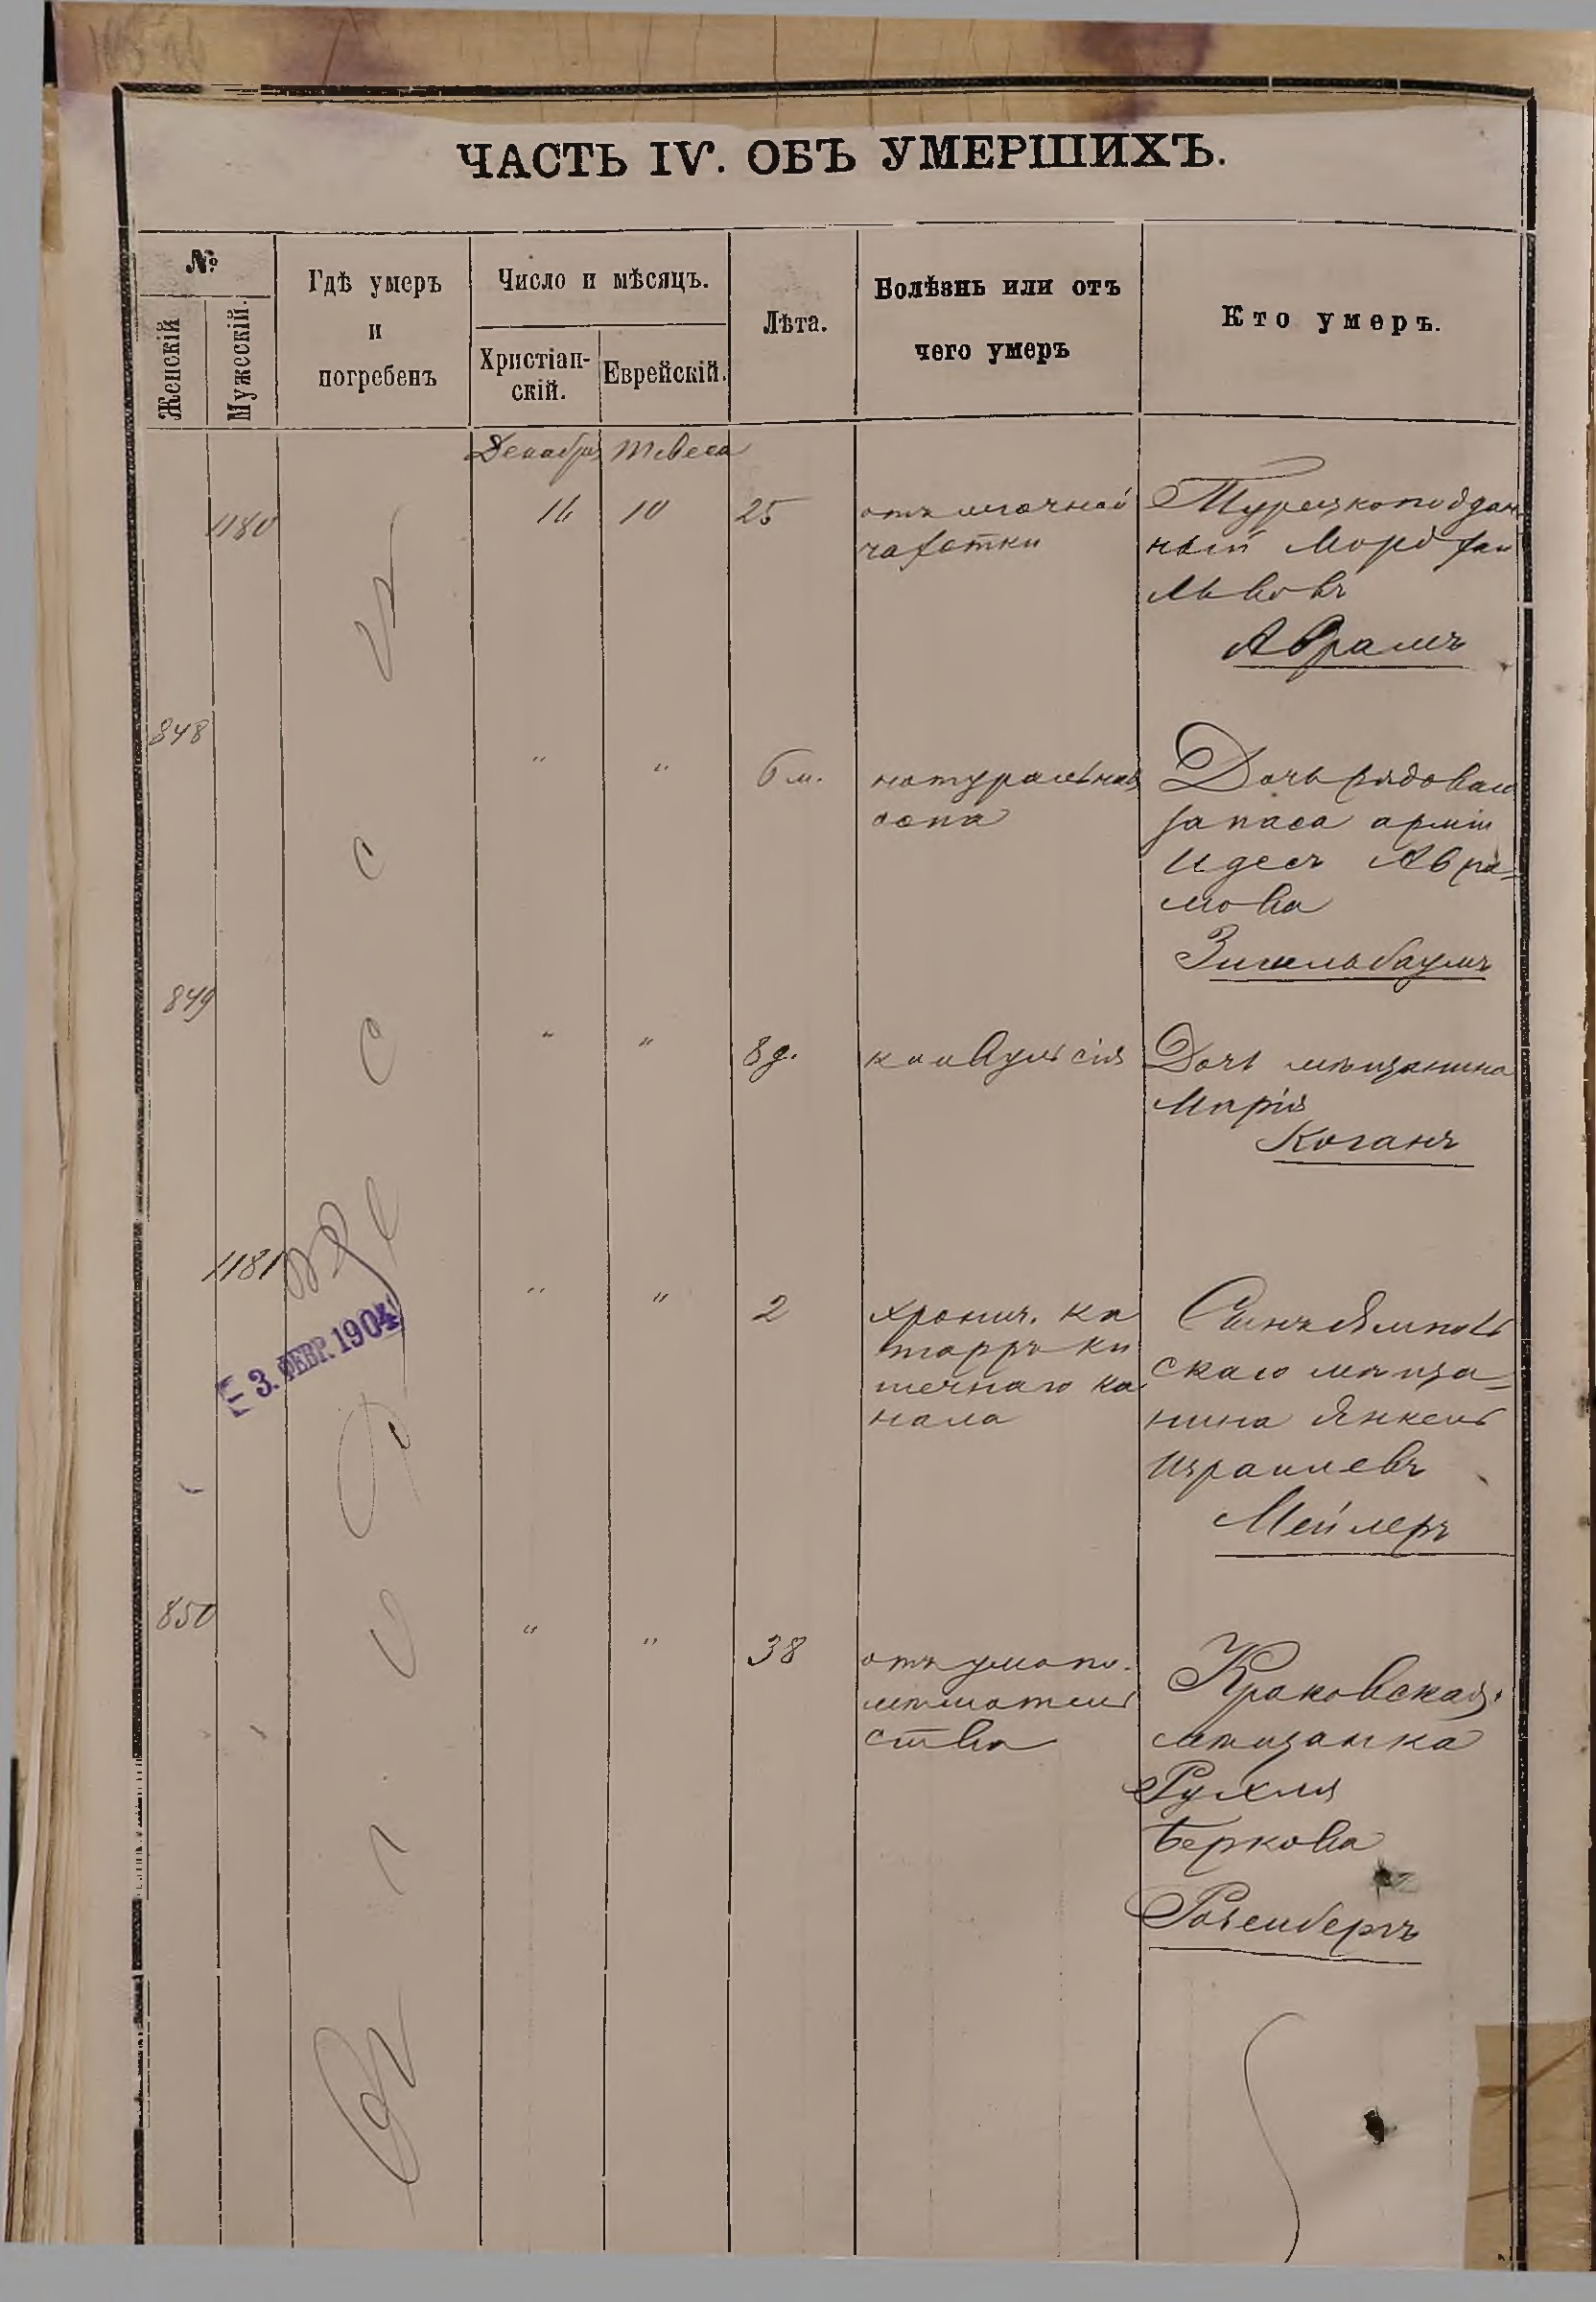 ЧАСТЬ IV. ОБЪ УМЕРШИХЪ.
№
Женскій
Мужескій.
Гдѣ умеръ
и
погребенъ
Число и мѣсяцъ.
Христіан-
скій.
Еврейскій.
Лѣта.
Болѣзнь или отъ
чего умеръ
Кто умеръ.
Декабря Тевеса
1180 16 10 25
отъ легочной
чахотки
Турецкоподдан
ный Мордхай
Львовъ
Аврамъ
848 " " 6 м.
натуральная
оспа
Дочь рядоваго
запаса арміи
Идесъ Авра-
мова
Зисельбаумъ
849 " " 8 д.
конвульсія
Дочь мѣщанина
Марія
Коганъ
1181 " " 2
хронич. ка
тарръ ки
шечнаго ка
нала
Сынъ Ямполь
скаго мѣща-
нина Янкель
Израилевъ
Мейлеръ
3. ФЕВР. 1904
850 " " 38
отъ умопо-
мѣшатель
ства
Краковская
мѣщанка
Рухля
Беркова
Розенбергъ